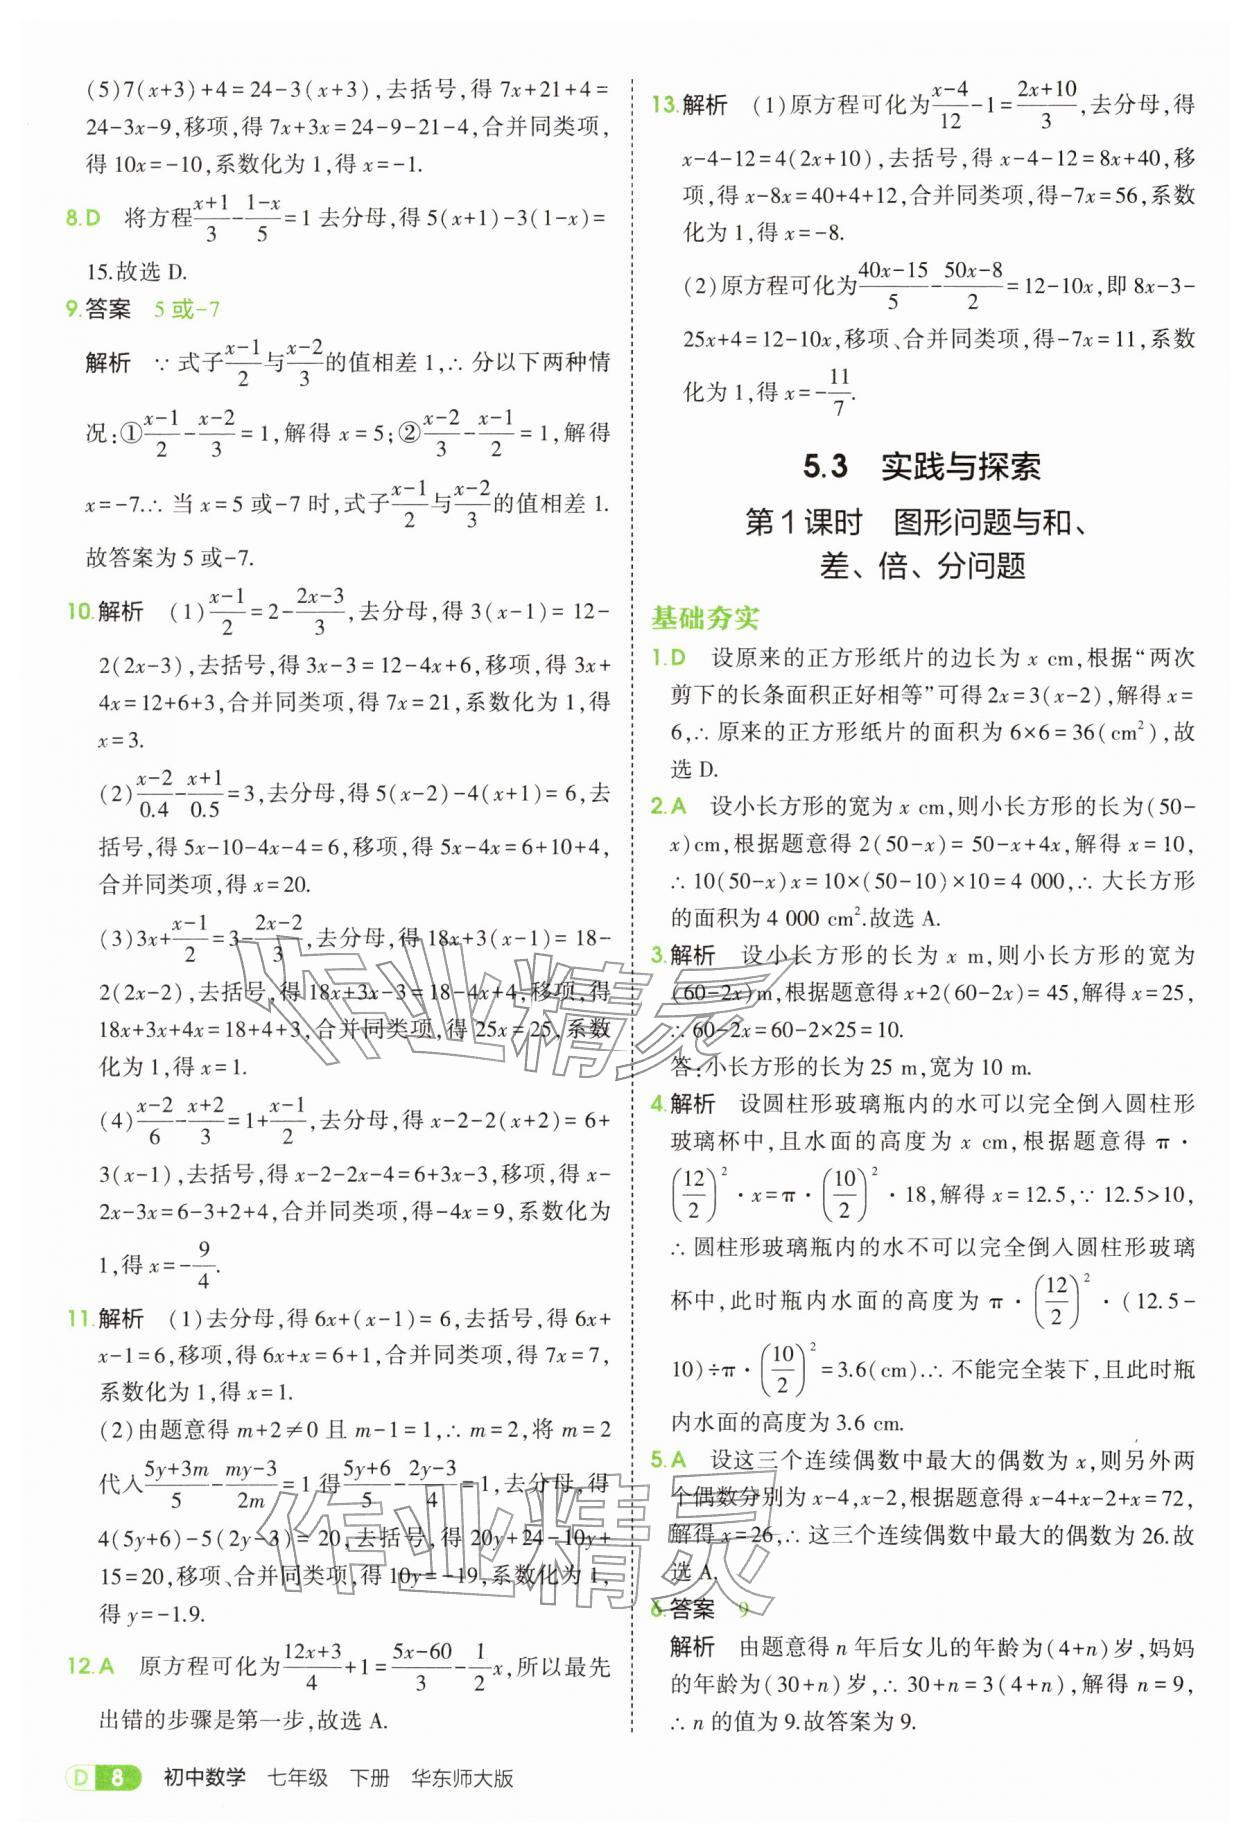 (5)7(x+3)+4=24-3(x+3),去括号,得 7x+21+4=
24-3x-9,移项,得 7x+3x=24-9-21-4,合并同类项,
得 10x=-10,系数化为 1,得 x=-1.
8.D 将方程\frac{x+1}{3}-\frac{1-x}{5}=1 去分母,得 5(x+1)-3(1-x)=
15.故选 D.
9.答案 5 或-7
解析 ∵ 式子\frac{x-1}{2}与\frac{x-2}{3}的值相差 1,∴ 分以下两种情
况:①\frac{x-1}{2}-\frac{x-2}{3}=1,解得 x=5;②\frac{x-2}{3}-\frac{x-1}{2}=1,解得
x=-7.∴ 当 x=5 或-7 时,式子\frac{x-1}{2}与\frac{x-2}{3}的值相差 1.
故答案为 5 或-7.
10.解析 (1)\frac{x-1}{2}=2-\frac{2x-3}{3},去分母,得 3(x-1)=12-
2(2x-3),去括号,得 3x-3=12-4x+6,移项,得 3x+
4x=12+6+3,合并同类项,得 7x=21,系数化为 1,得
x=3.
(2)\frac{x-2}{0.4}-\frac{x+1}{0.5}=3,去分母,得 5(x-2)-4(x+1)=6,去
括号,得 5x-10-4x-4=6,移项,得 5x-4x=6+10+4,
合并同类项,得 x=20.
(3)3x+\frac{x-1}{2}=3-\frac{2x-2}{3},去分母,得 18x+3(x-1)=18-
2(2x-2),去括号,得 18x+3x-3=18-4x+4,移项,得
18x+3x+4x=18+4+3,合并同类项,得 25x=25,系数
化为 1,得 x=1.
(4)\frac{x-2}{6}-\frac{x+2}{3}=1+\frac{x-1}{2},去分母,得 x-2-2(x+2)=6+
3(x-1),去括号,得 x-2-2x-4=6+3x-3,移项,得 x-
2x-3x=6-3+2+4,合并同类项,得-4x=9,系数化为
1,得 x=-\frac{9}{4}.
11.解析 (1)去分母,得 6x+(x-1)=6,去括号,得 6x+
x-1=6,移项,得 6x+x=6+1,合并同类项,得 7x=7,
系数化为 1,得 x=1.
(2)由题意得 m+2≠0 且 m-1=1,∴ m=2,将 m=2
代入\frac{5y+3m}{5}-\frac{my-3}{2m}=1 得\frac{5y+6}{5}-\frac{2y-3}{4}=1,去分母,得
4(5y+6)-5(2y-3)=20,去括号,得 20y+24-10y+
15=20,移项、合并同类项,得 10y=-19,系数化为 1,
得 y=-1.9.
12.A 原方程可化为\frac{12x+3}{4}+1=\frac{5x-60}{3}-\frac{1}{2}x,所以最先
出错的步骤是第一步,故选 A.
D 8 初中数学 七年级 下册 华东师大版
13.解析 (1)原方程可化为\frac{x-4}{12}-1=\frac{2x+10}{3},去分母,得
x-4-12=4(2x+10),去括号,得 x-4-12=8x+40,移
项,得 x-8x=40+4+12,合并同类项,得-7x=56,系数
化为 1,得 x=-8.
(2)原方程可化为\frac{40x-15}{5}-\frac{50x-8}{2}=12-10x,即 8x-3-
25x+4=12-10x,移项、合并同类项,得-7x=11,系数
化为 1,得 x=-\frac{11}{7}.
5.3 实践与探索
第 1 课时 图形问题与和、
差、倍、分问题
基础夯实
1.D 设原来的正方形纸片的边长为 x cm,根据“两次
剪下的长条面积正好相等”可得 2x=3(x-2),解得 x=
6,∴ 原来的正方形纸片的面积为 6×6=36(cm²),故
选 D.
2.A 设小长方形的宽为 x cm,则小长方形的长为(50-
x)cm,根据题意得 2(50-x)=50-x+4x,解得 x=10,
∴ 10(50-x)x=10×(50-10)×10=4 000,∴ 大长方形
的面积为 4 000 cm².故选 A.
3.解析 设小长方形的长为 x m,则小长方形的宽为
(60-2x)m,根据题意得 x+2(60-2x)=45,解得 x=25,
∴ 60-2x=60-2×25=10.
答:小长方形的长为 25 m,宽为 10 m.
4.解析 设圆柱形玻璃瓶内的水可以完全倒入圆柱形
玻璃杯中,且水面的高度为 x cm,根据题意得 π·
(\frac{12}{2})²·x=π·(\frac{10}{2})²·18,解得 x=12.5,∵ 12.5>10,
∴ 圆柱形玻璃瓶内的水不可以完全倒入圆柱形玻璃
杯中,此时瓶内水面的高度为 π·(\frac{12}{2})²·(12.5-
10)÷π·(\frac{10}{2})²=3.6(cm).∴ 不能完全装下,且此时瓶
内水面的高度为 3.6 cm.
5.A 设这三个连续偶数中最大的偶数为 x,则另外两
个偶数分别为 x-4,x-2,根据题意得 x-4+x-2+x=72,
解得 x=26,∴ 这三个连续偶数中最大的偶数为 26.故
选 A.
6.答案 9
解析 由题意得 n 年后女儿的年龄为(4+n)岁,妈妈
的年龄为(30+n)岁,∴ 30+n=3(4+n),解得 n=9,
∴ n 的值为 9.故答案为 9.
作业精灵
作业精灵